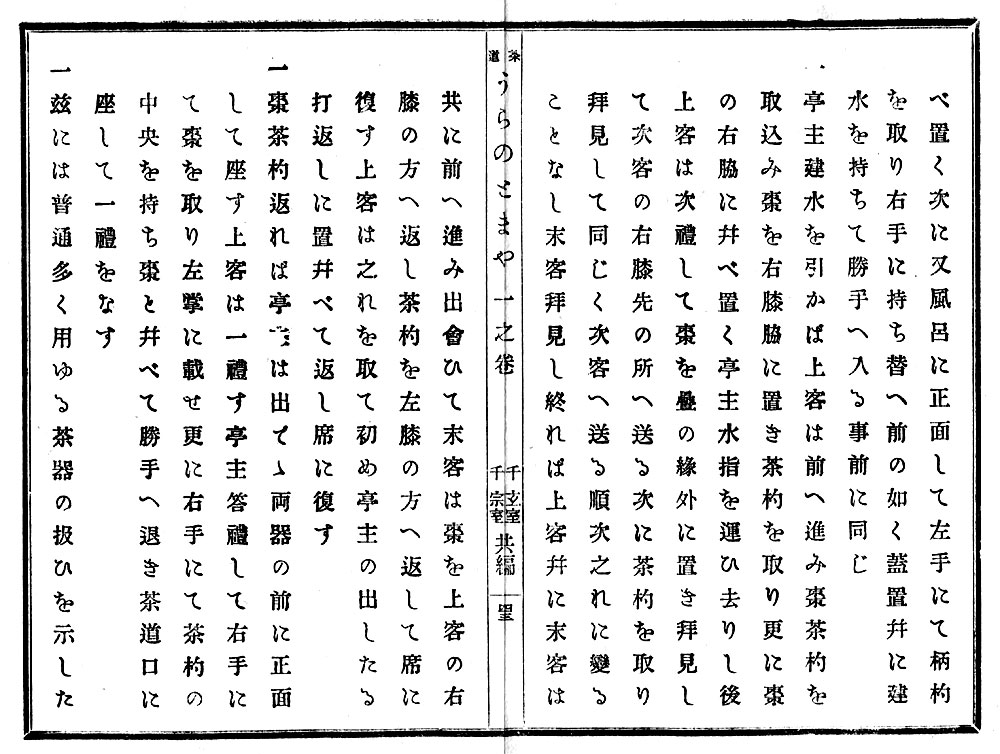 べ置く次に又風呂に正面して左手にて柄杓
を取り右手に持ち替へ前の如く蓋置幷に建
水を持ちて勝手へ入る事前に同じ
亭主建水を引かば上客は前へ進み棗茶杓を
取込み棗を右膝脇に置き茶杓を取り更に棗
の右脇に幷べ置く亭主水指を運ひ去りし後
上客は次禮して棗を疊の緣外に置き拜見し
て次客の右膝先の所へ送る次に茶杓を取り
拜見して同じく次客へ送る順次之れに變る
ことなし末客拜見し終れば上客幷に末客は
茶道 うらのとまや 一之卷 千玄室 千宗室 共編
共に前へ進み出會ひて末客は棗を上客の右
膝の方へ返し茶杓を左膝の方へ返して席に
復す上客は之れを取て初め亭主の出したる
打返しに置幷べて返し席に復す
一棗茶杓返れば亭主は出てゝ両器の前に正面
して座す上客は一禮す亭主答禮して右手に
て棗を取り左掌に載せ更に右手にて茶杓の
中央を持ち棗と幷べて勝手へ退き茶道口に
座して一禮をなす
一玆には普通多く用ゆる茶器の扱ひを示した